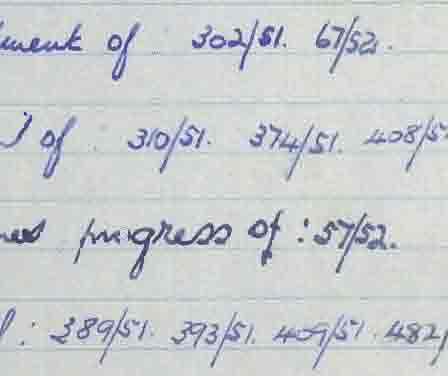 ment of 302/51. 67/52.
l of : 310/51. 374/51. 408/5
progress of : 57/52.
l : 389/51. 393/51. 409/51. 482/